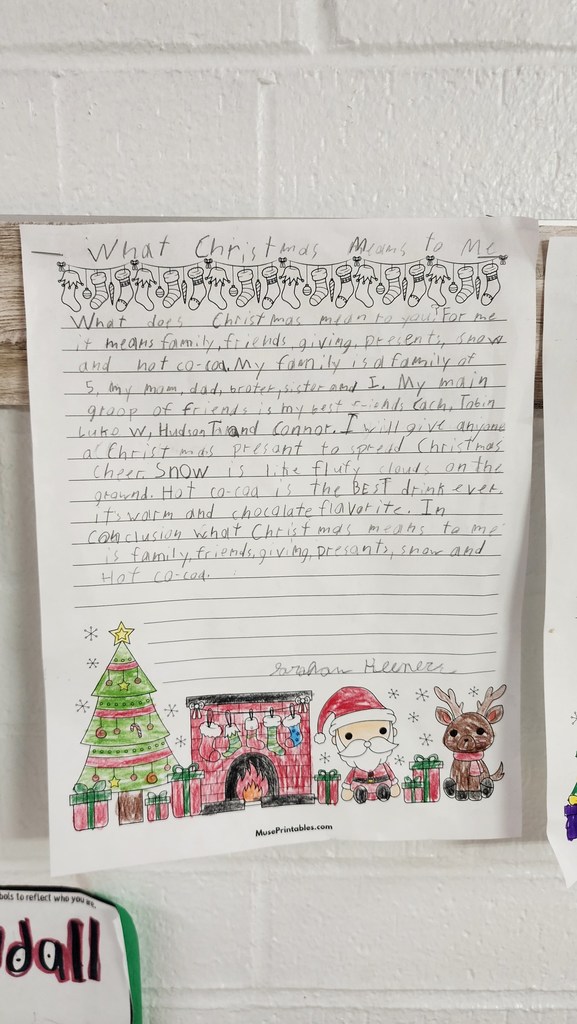 What Christmas Means to Me
What does Christmas mean to you? For me
it means family, friends, giving, presents, snow
and hot co-coa. My family is a family of
5, my mom, dad, broter, sister and I. My main
groop of friends is my best friends Tobin
Luke W, Hudson T and Connor. I will give anyone
a Christmas presant to spread Christmas
cheer. Snow is like flufy clouds on the
grownd. Hot co-coa is the BEST drink ever.
its warm and chocolate flavorite. In
conclusion what Christmas means to me
is family, friends, giving, presants, snow and
Hot co-coa.
MusePrintables.com
bols to reflect who you are.
dall